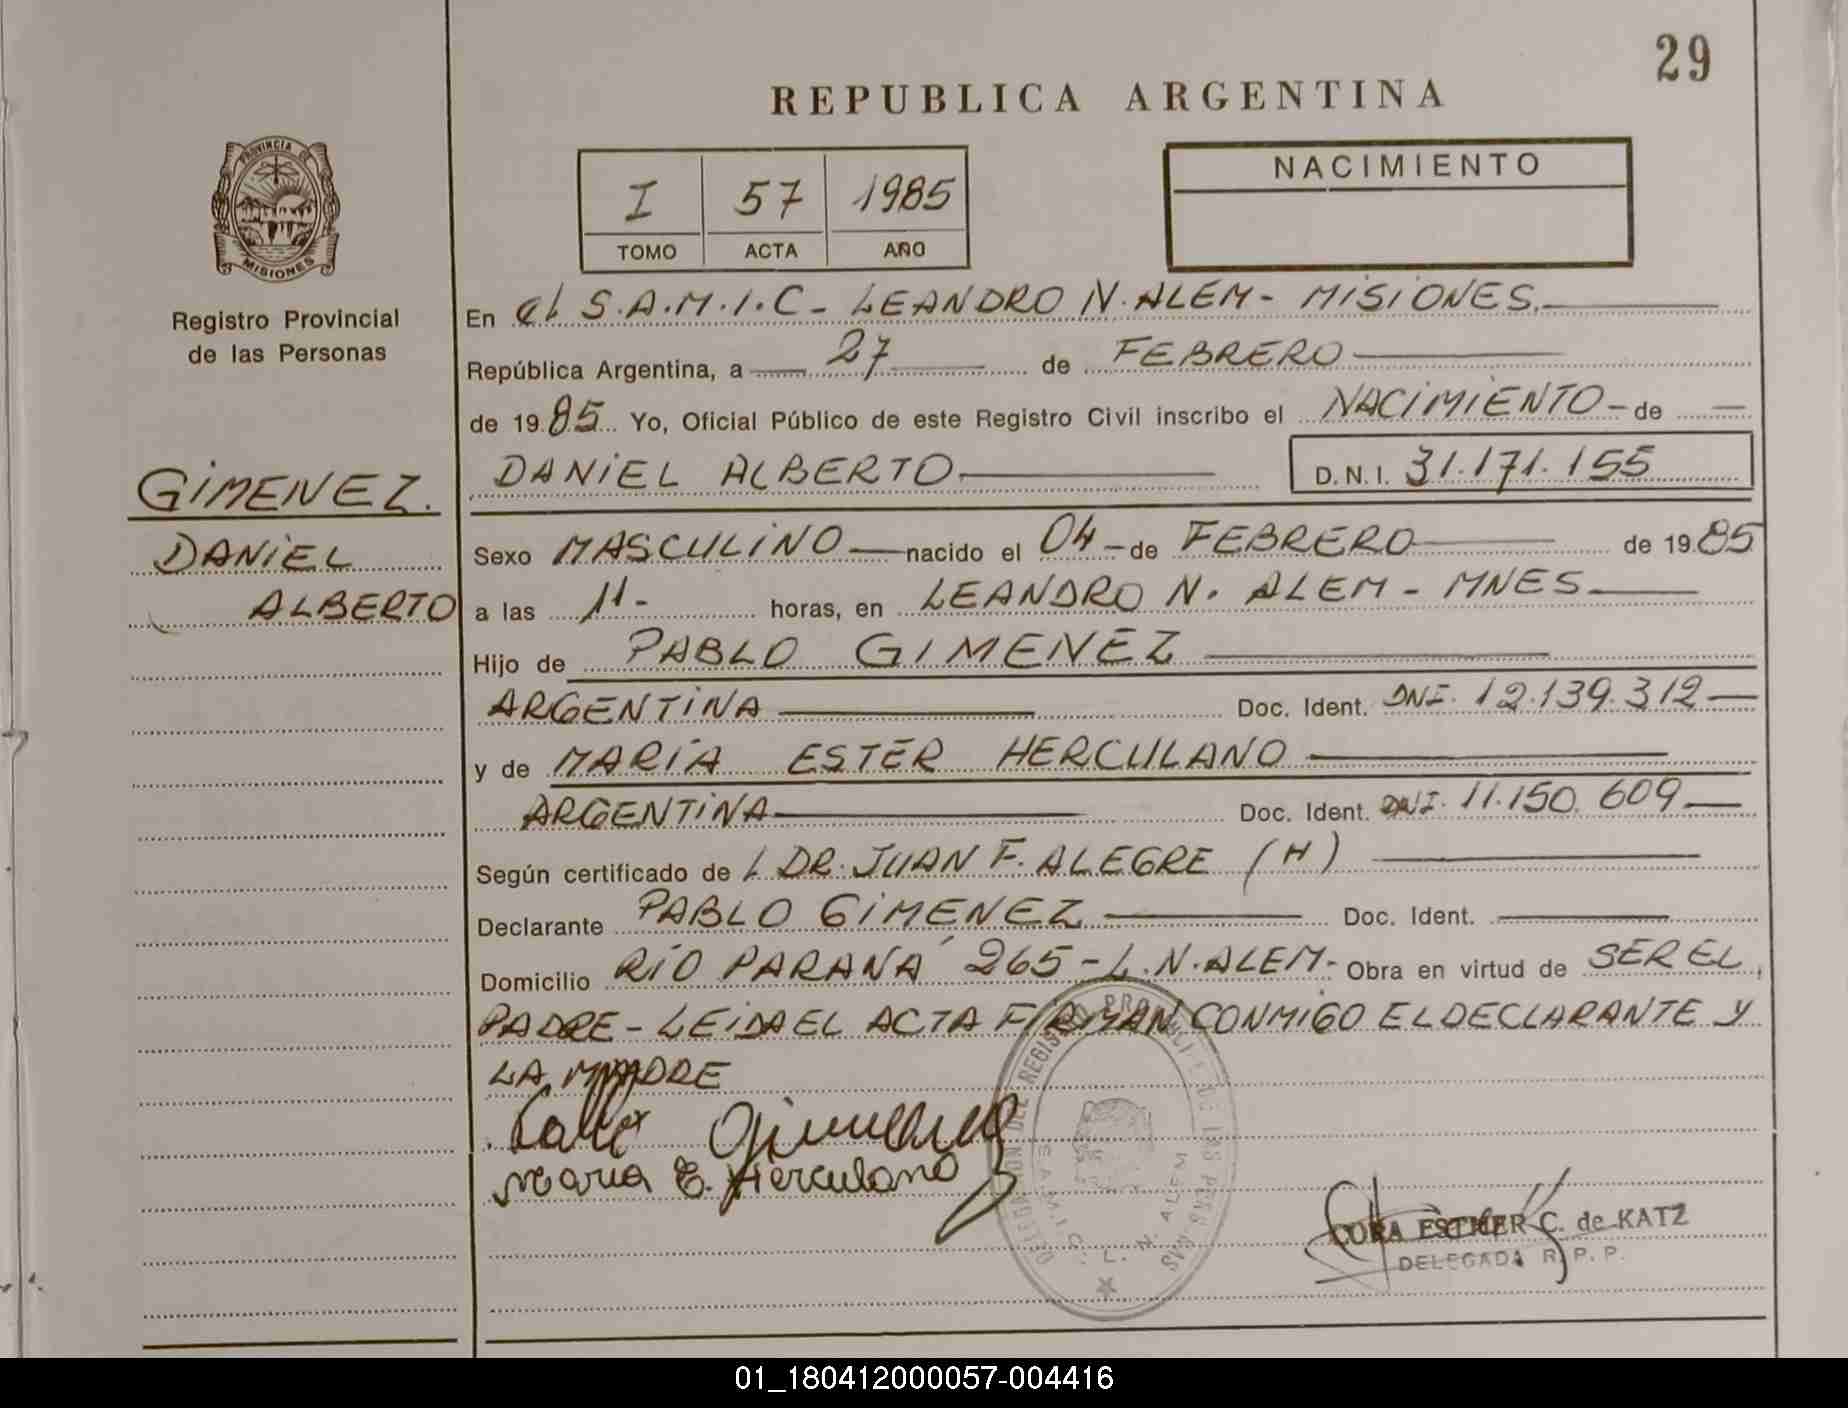 29
REPUBLICA ARGENTINA
PROVINCIA DE
MISIONES
Registro Provincial
de las Personas
I 57 1985
TOMO ACTA AÑO
NACIMIENTO
En el S.A.M.I.C - LEANDRO N. ALEM - MISIONES.
República Argentina, a 27 de FEBRERO
de 1985 Yo, Oficial Público de este Registro Civil inscribo el NACIMIENTO - de
DANIEL ALBERTO D.N.I. 31.171.155
GIMENEZ.
DANIEL
ALBERTO
Sexo MASCULINO nacido el 04 - de FEBRERO de 1985
a las 11 - horas, en LEANDRO N. ALEM - MNES
Hijo de PABLO GIMENEZ
ARGENTINA Doc. Ident. DNI. 12.139.312
y de MARÍA ESTER HERCULANO
ARGENTINA Doc. Ident. DNI. 11.150.609
Según certificado de L DR. JUAN F. ALEGRE (H)
Declarante PABLO GIMENEZ Doc. Ident.
Domicilio RÍO PARANÁ 265 - L.N. ALEM - Obra en virtud de SER EL
PADRE - LEIDA EL ACTA FIRMAN CONMIGO EL DECLARANTE Y
LA MADRE
Gimenez
Maria E. Herculano
DELEGACION DEL REGISTRO PROVINCIAL DE LAS PERSONAS
S.A.M.I.C. L. N. ALEM
CORA ESTHER C. de KATZ
DELEGADA R. P. P.
01_180412000057-004416